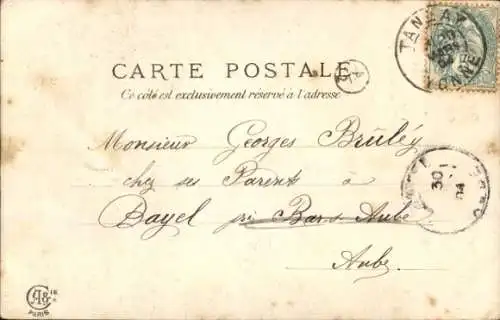 TANLAY
YONNE
CARTE POSTALE
Ce côté est exclusivement réservé à l'adresse
Monsieur Georges Brûley
chez ses Parents à
Bayel près Bar s Aube
Aube
30
04
PARIS